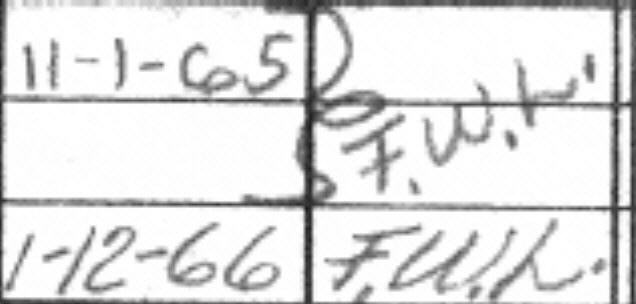 11-1-65 F.W.L.
1-12-66 F.W.L.